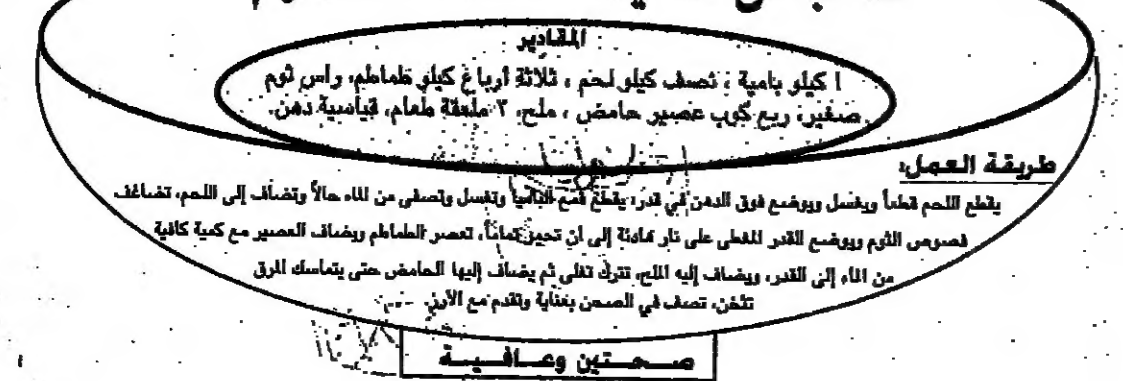 المقادير
١ كيلو بامية ، نصف كيلو لحم ، ثلاثة أرباع كيلو طماطم، راس ثوم
صغير، ربع كوب عصير حامض ، ملح، ٢ ملعقة طعام، قياسية دهن.
طريقة العمل:
يقطع اللحم قطعاً ويغسل ويوضع فوق الدهن في قدر، يقطع قمع الباميا وتغسل وتصفى من الماء حالاً وتضاف إلى اللحم، تضاف
فصوص الثوم ويوضع القدر المغطى على نار هادئة إلى ان تحيز تماماً، تعصر الطماطم ويضاف العصير مع كمية كافية
من الماء إلى القدر، ويضاف إليه الملح، تترك تغلى ثم يضاف إليها الحامض حتى يتماسك المرق
تثخن، تصف في الصحن بعناية وتقدم مع الأرز.
صحتين وعافية